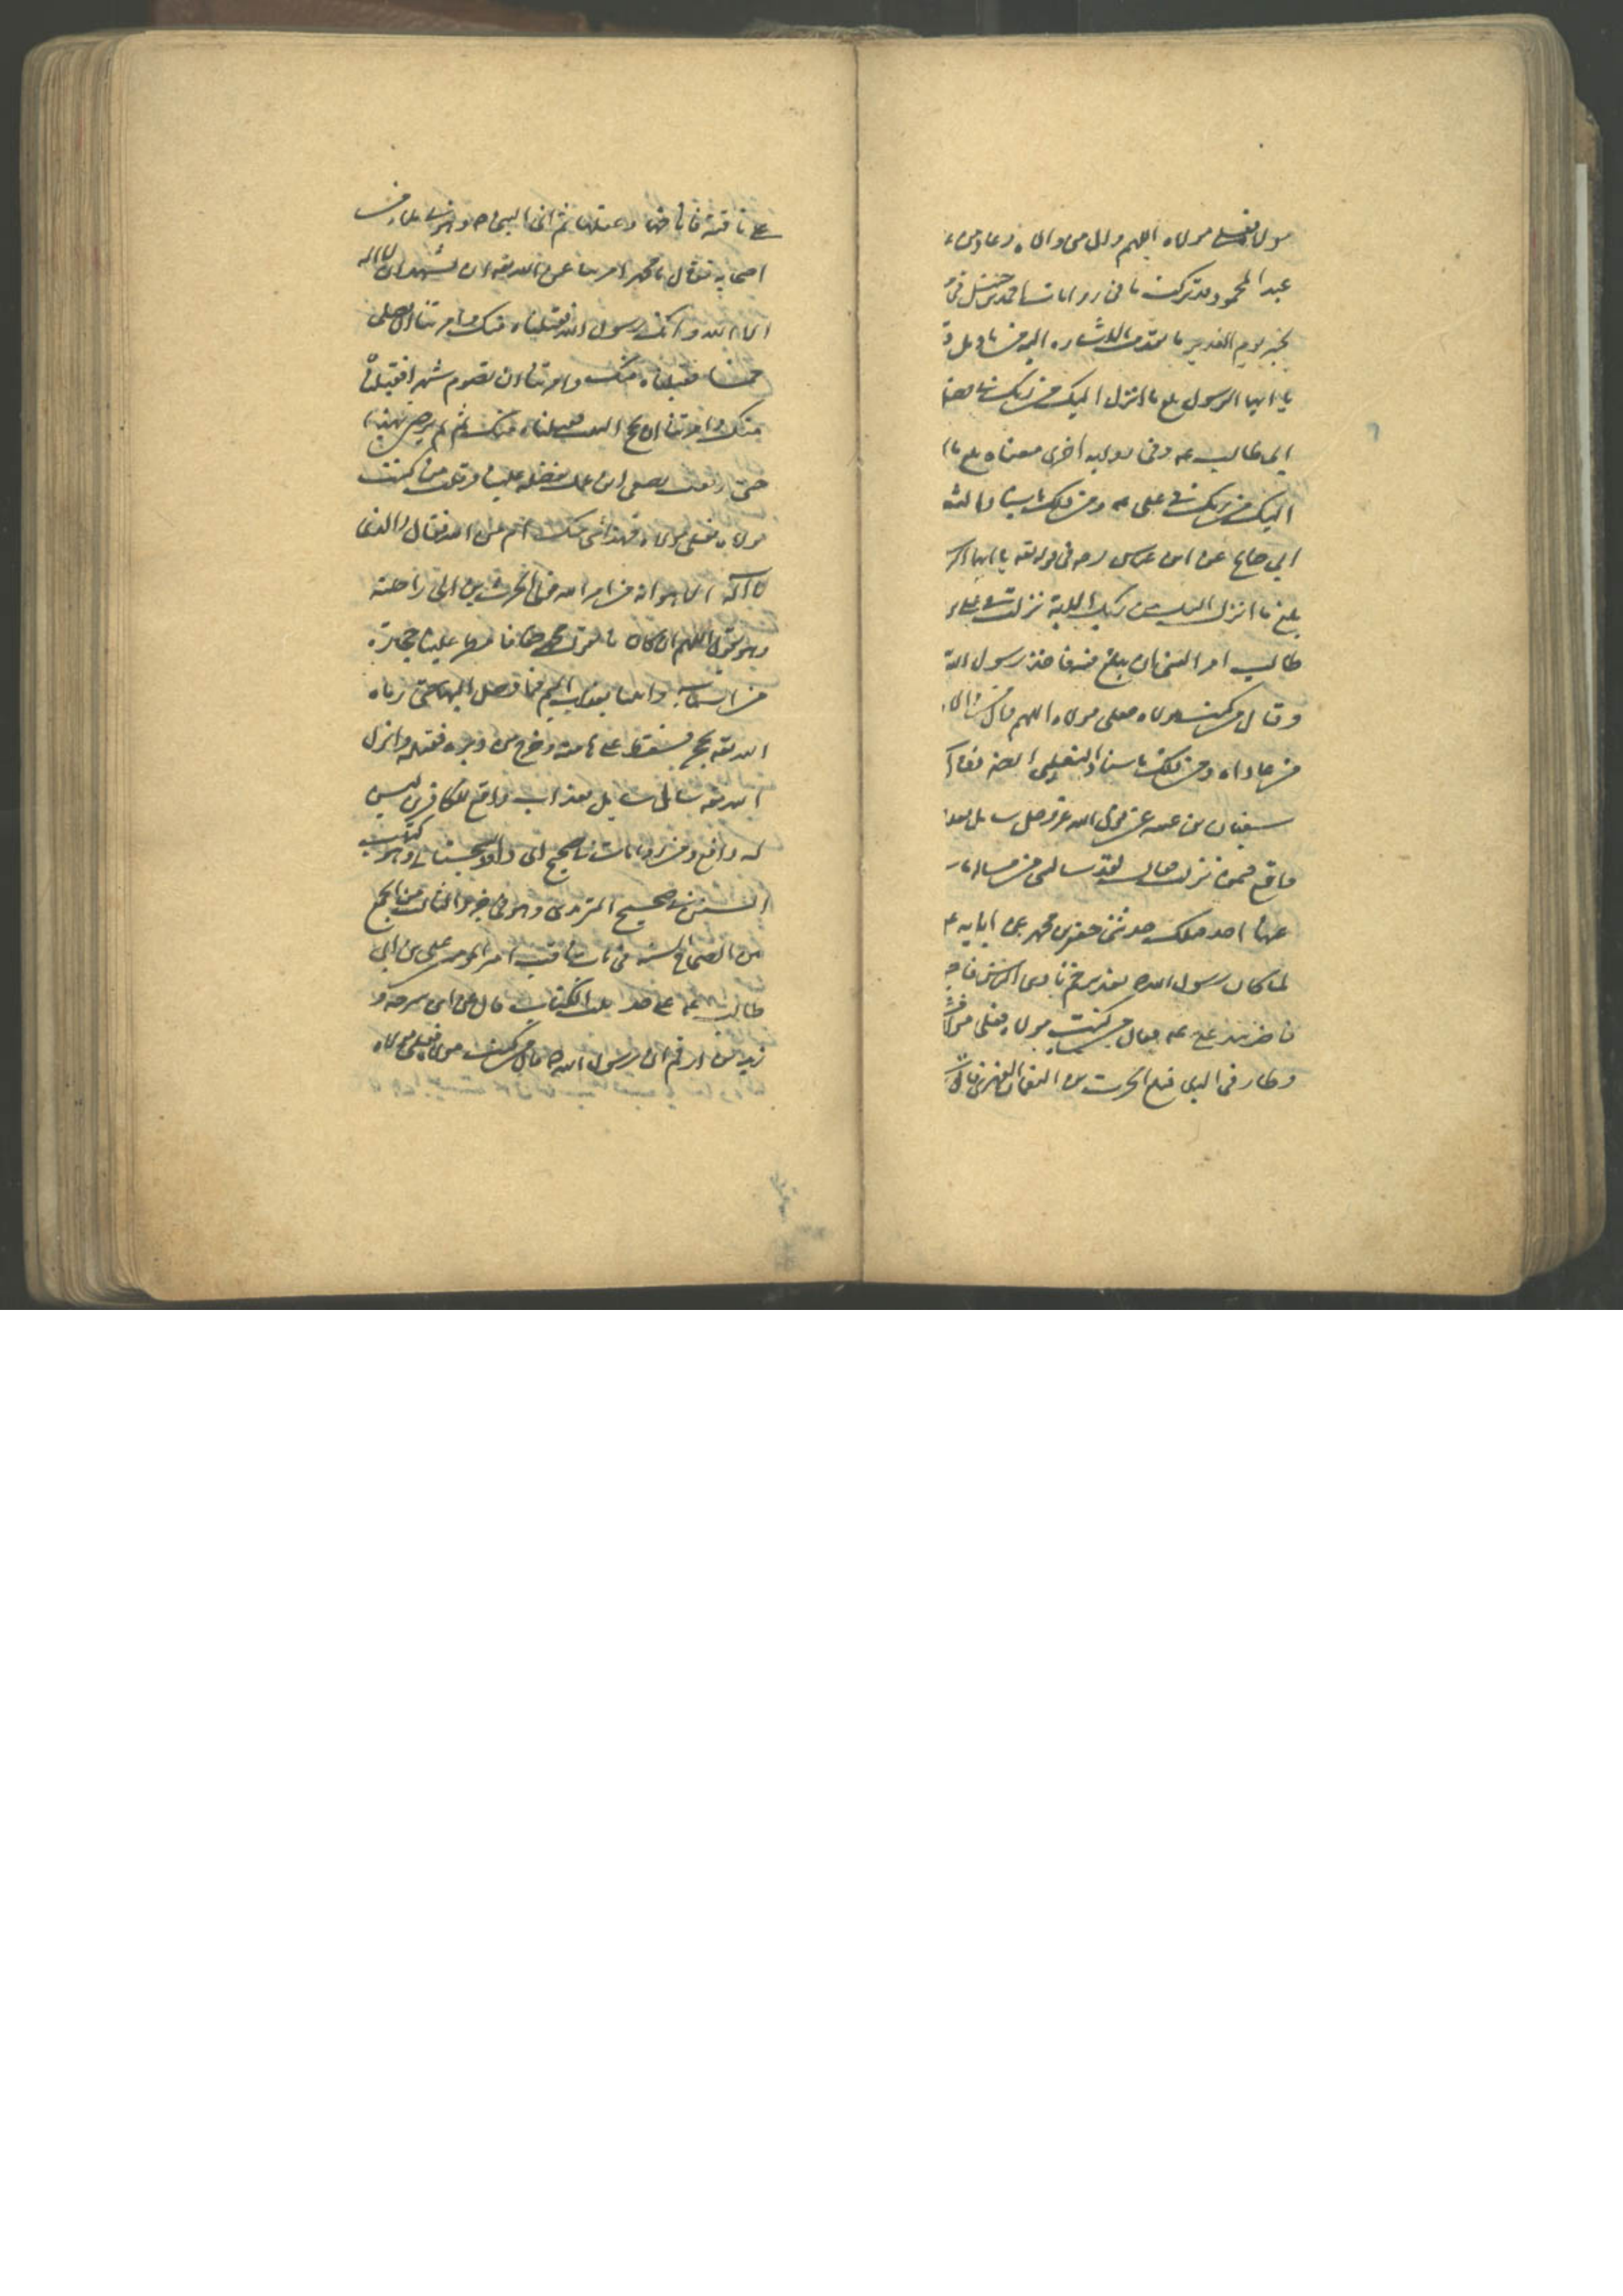 مولاه فعلي مولاه اللهم وال من والاه وعاد من
عبد المحمود قد تركت باقي روايات احمد بن حنبل في
بخبر يوم الغدير ما تقدمت الاشاره اليه
يا ايها الرسول بلغ ما انزل اليك من ربك في فضل
ابي طالب عه وفي روايه اخرى معناه بلغ ما
اليك من ربك في علي عه ومن ذلك باسناد الث
ابي صالح عن ابن عباس رحه في قوله تعه يا ايها الر
بلغ ما انزل اليك من ربك الاية نزلت في علي
طالب امر النبي ان يبلغ فيه فاخذ رسول الله
وقال من كنت مولاه فعلي مولاه اللهم وال من والا
من عاداه ومن ذلك باسناد الثعلبي ايضه
سفيان بن عينه عن قول الله عز وجل سايل بعذ
واقع فيمن نزلت فقال لقد سالتني من مسالة ما
عنها احد قبلك حدثني جعفر بن محمد عن ابايه ع
لما كان رسول الله ص بغدير خم نادى الناس فاج
فاخذ بيد علي عه فقال من كنت مولاه فعلي مولا
وطار في البلاد فبلغ الحرث بن النعمان الفهري فاتى
على ناقته فاناخها وعقلها ثم اتى النبي ص وهو في ملاء من
اصحابه فقال يا محمد امرتنا عن الله تعه ان نشهد ان لا اله
الا الله وانك رسول الله فقبلناه منك وامرتنا ان نصلي
خمسا فقبلناه منك وامرتنا ان نصوم شهرا فقبلناه
منك وامرتنا ان نحج البيت فقبلناه منك ثم لم ترض بهذا
حتى رفعت بضبعي ابن عمك بفضله علينا وقلت من كنت
مولاه فعلي مولاه فهذا شي منك ام من الله فقال والذي
لا اله الا هو انه من امر الله فولى الحرث يريد راحلته
وهو يقول اللهم ان كان ما يقول محمد حقا فامطر علينا حجارة
من السماء او ائتنا بعذاب اليم فما وصل اليها حتى رماه
الله تعه بحجر فسقط على هامته وخرج من دبره فقتله وانزل
الله تعه سال سايل بعذاب واقع للكافرين ليس
له دافع ومن روايات في صحيح ابي داود السجستاني وهو كتاب
السنن في صحيح الترمذي وهو في جزو الثالث من الجمع
بين الصحاح الستة في باب مناقب امير المومنين علي بن ابي
طالب عه على حد ثلث الكتاب قال عن ابي سرحه و
زيد بن ارقم ان رسول الله ص قال من كنت مولاه فعلي مولاه